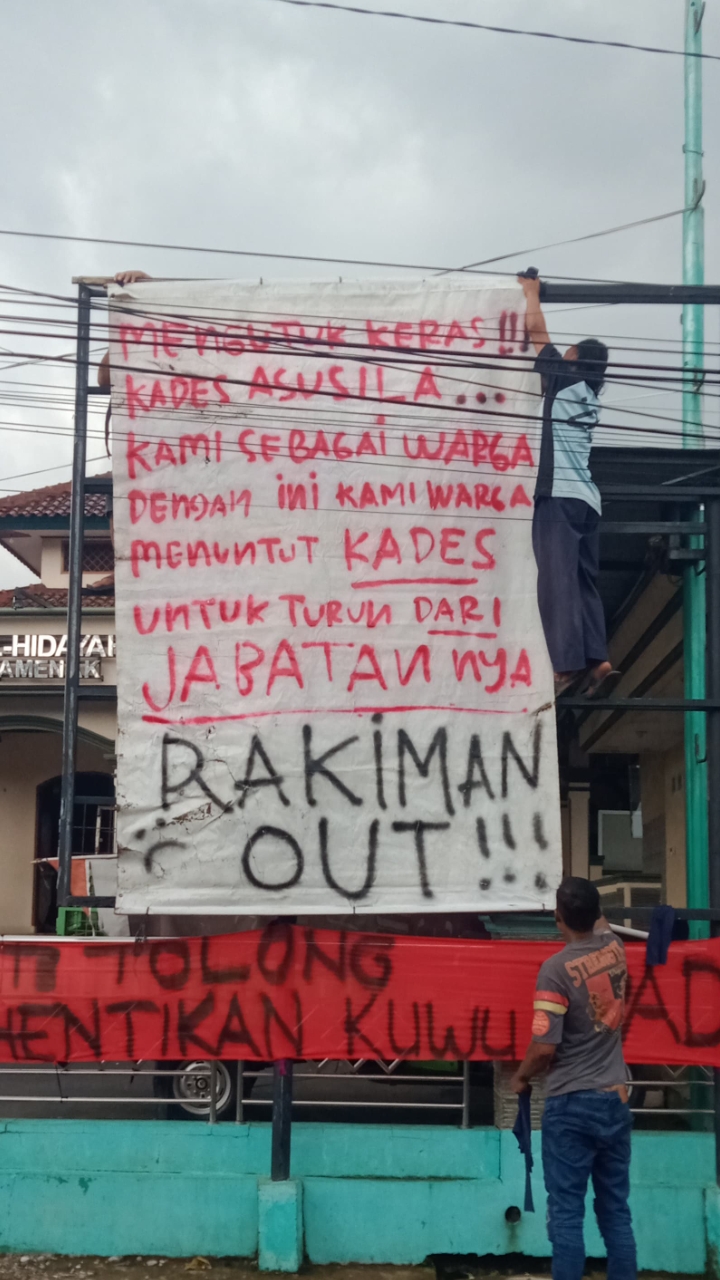 MENGUTUK KERAS!!!
KADES ASUSILA...
KAMI SEBAGAI WARGA
DENGAN INI KAMI WARGA
MENUNTUT KADES
UNTUK TURUN DARI
JABATAN NYA
RAKIMAN
:( OUT!!!
L-HIDAYAH
TOLONG
HENTIKAN KUWU
AD